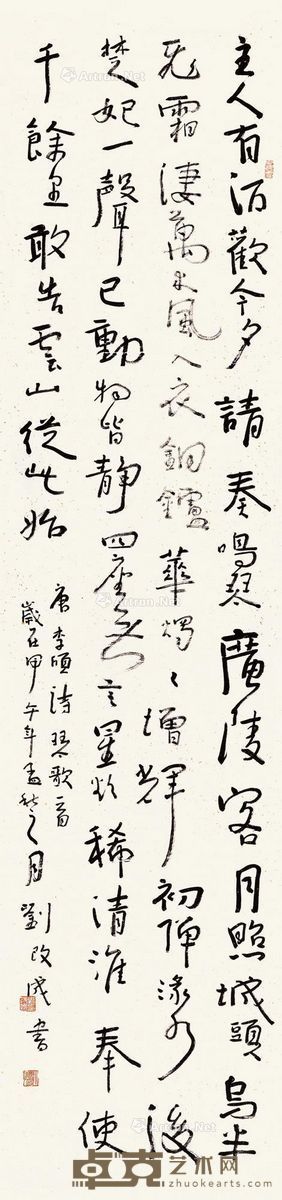 主人有酒歡今夕請奏鳴琴廣陵客月照城頭烏半
飛霜淒萬木風入衣銅鑪華燭々增輝初彈渌水後
楚妃一聲已動物皆靜四座無言星欲稀清淮奉使
千餘里敢告雲山從此始
唐李頎詩琴歌一首
歲在甲午年孟秋之月劉成書
Artron.Net
卓克艺术网
zhuokearts.com